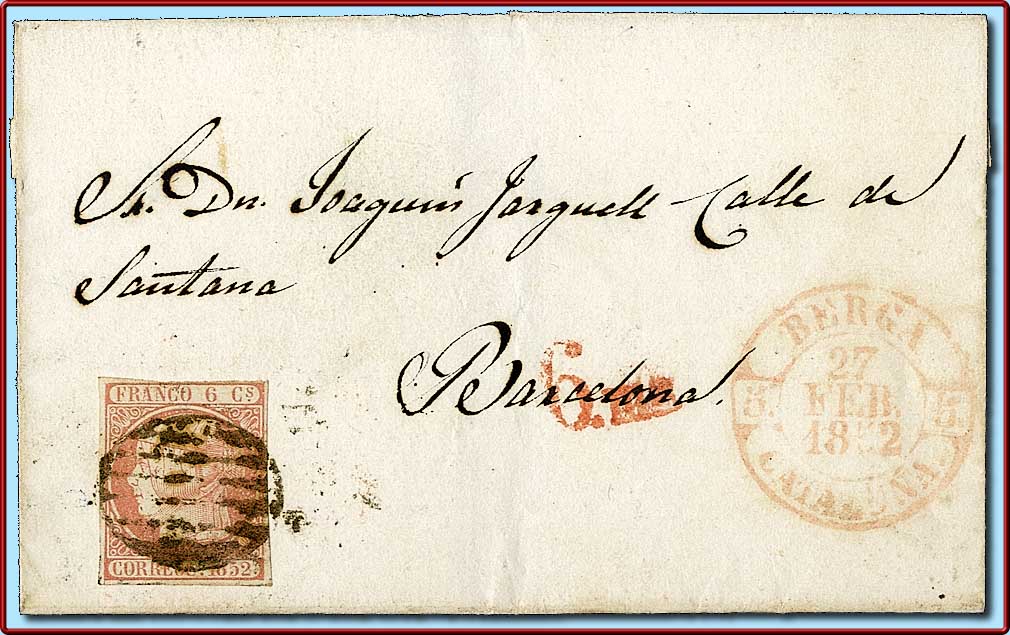 Sr. Dn. Joaquin Jarguell Calle de
Santana
Barcelona.
6.
FRANCO 6 CS
CORREOS. 1852.
BERGA
27
FEB.
1852
5. 5.
CATALUÑA.